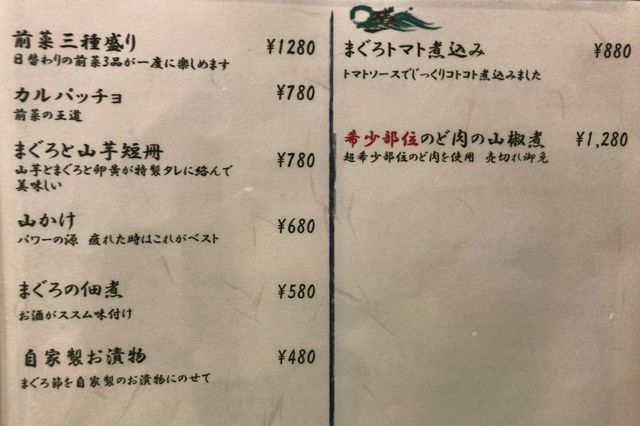 前菜三種盛り ¥1280
日替わりの前菜3品が一度に楽しめます
カルパッチョ ¥780
前菜の王道
まぐろと山芋短冊 ¥780
山芋とまぐろと卵黄が特製タレに絡んで
美味しい
山かけ ¥680
パワーの源 疲れた時はこれがベスト
まぐろの佃煮 ¥580
お酒がススム味付け
自家製お漬物 ¥480
まぐろ節を自家製のお漬物にのせて
まぐろトマト煮込み ¥880
トマトソースでじっくりコトコト煮込みました
希少部位のど肉の山椒煮 ¥1,280
超希少部位のど肉を使用 売切れ御免